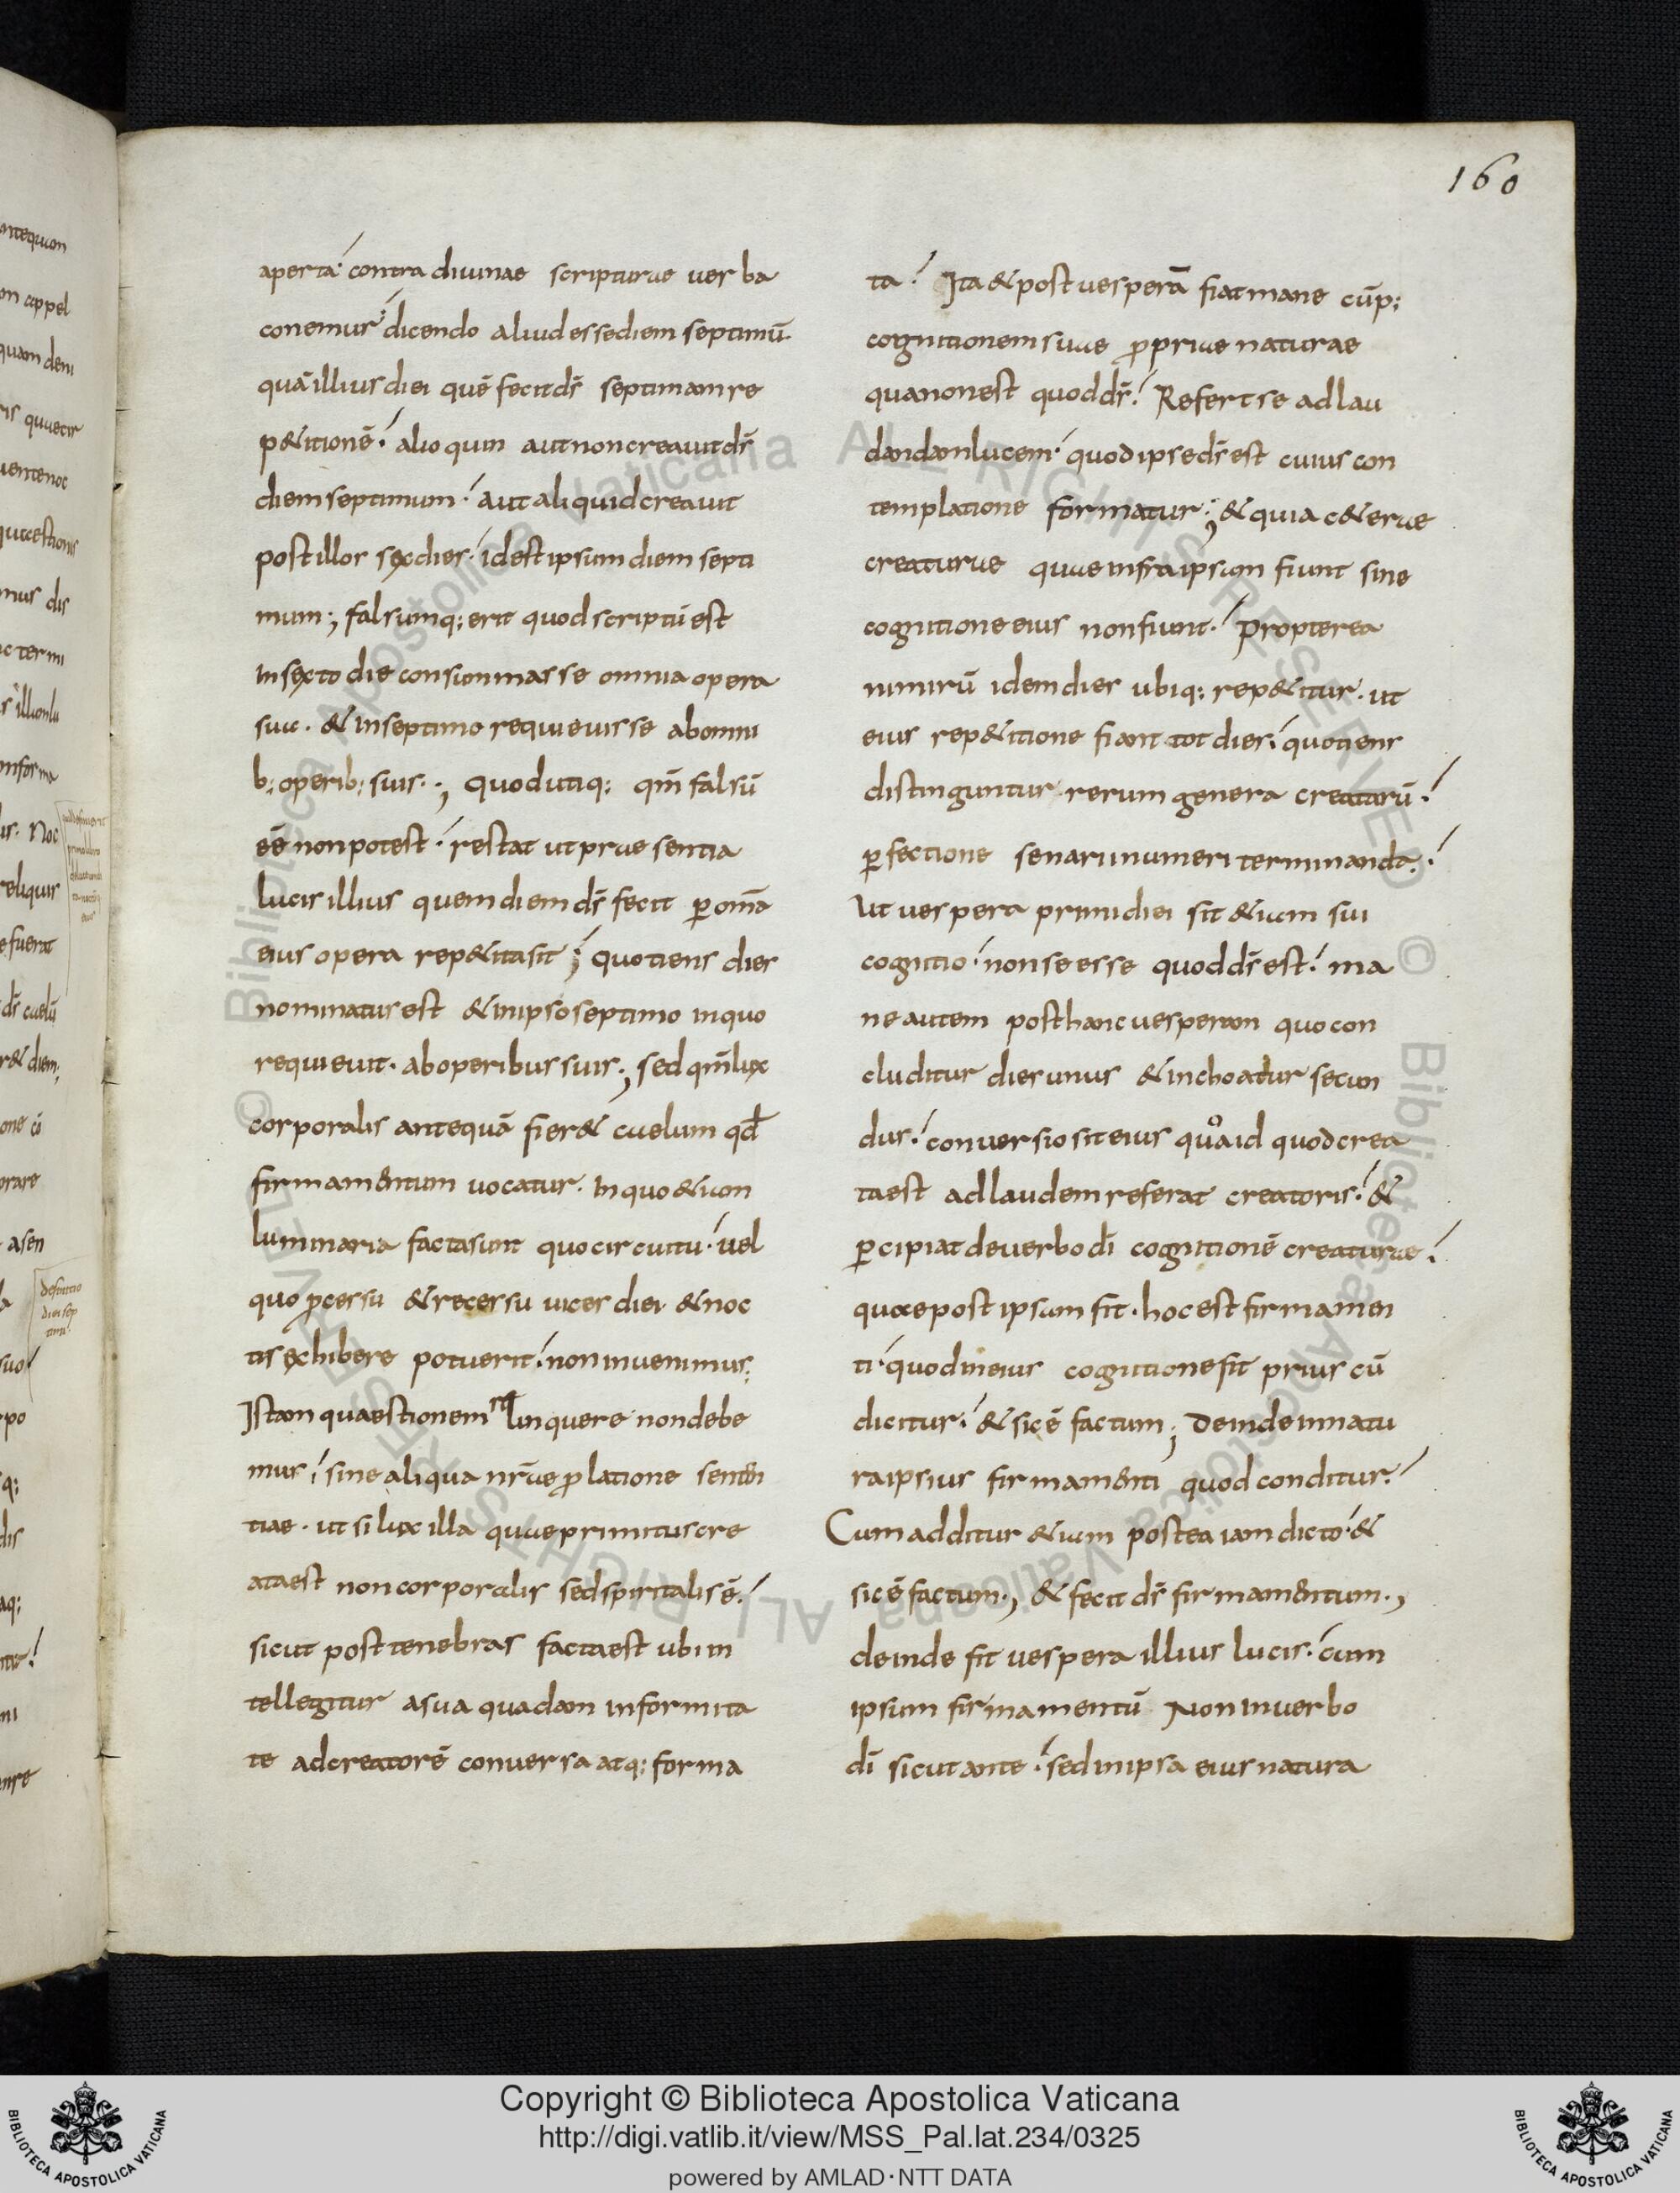 160
aperta contra diuinae scripturae uerba
conemur dicendo aliud esse diem septimū
quā illius diei quē fecit dś septimam re
p&itionē. alioquin aut non creauit dś
diem septimum. aut aliquid creauit
post illos sex dies. id est ipsum diem septi
mum; falsumq: erit quod scriptū est
in sexto die consummasse omnia opera
sua. & in septimo requieuisse ab omni
b: operib: suis.; quod utiq: qm̄ falsū
eē non potest. restat ut praesentia
lucis illius quem diem dś fecit ꝑ om̄a
eius opera rep&ita sit; quotiens dies
nominatus est & in ipso septimo in quo
requieuit. ab operibus suis.; sed qm̄ lux
corporalis antequā fier& caelum qđ
firmamentum uocatur. In quo &iam
luminaria facta sunt quo circuitu. uel
quo ꝓcessu & recessu uices diei & noc
tis exhibere potuerit. non inuenimus;
Istam quaestionem relinquere non debe
mus. sine aliqua nr̄ae ꝓlatione senten
tiae. ut si lux illa quae primitus cre
ata est non corporalis sed spiritalis ē.
sicut post tenebras facta est ubi in
tellegitur a sua quadam informita
te ad creatorē conuersa atq: forma
ta. Ita & post uesperā fiat mane cūp:
cognitionem suae ꝓpriae naturae
qua non est quod dś. Refert se ad lau
dandam lucem quod ipse dś est cuius con
templatione formatur; & quia c&erae
creaturae quae infra ipsam fiunt sine
cognitione eius non fiunt. propterea
nimirū idem dies ubiq: rep&itur. ut
eius rep&itione fiant tot dies. quotiens
distinguntur rerum genera creatarū.
ꝑfectione senarii numeri terminanda.
Ut uespera primi diei sit &iam sui
cognitio. non se esse quod dś est. ma
ne autem post hanc uesperam quo con
cluditur dies unus & inchoatur secun
dus. conuersio sit eius quoaid quod crea
ta est ad laudem referat creatoris. &
ꝑcipiat de uerbo dī cognitionē creaturae.
quae post ipsam fit. hoc est firmamen
ti. quod in eius cognitione fit prius cū
dicitur. & sic ē factum; Deinde in natu
ra ipsius firmamenti quod conditur.
Cum additur &iam postea iam dicto. &
sic ē factum., & fecit dś firmamentum.,
deinde fit uespera illius lucis. cum
ipsum firmamentū Non in uerbo
dī sicut ante. sed in ipsa eius natura
Copyright © Biblioteca Apostolica Vaticana
http://digi.vatlib.it/view/MSS_Pal.lat.234/0325
powered by AMLAD·NTT DATA
BIBLIOTECA APOSTOLICA VATICANA
BIBLIOTECA APOSTOLICA VATICANA
© Biblioteca Apostolica Vaticana ALL RIGHTS RESERVED
© Biblioteca Apostolica Vaticana ALL RIGHTS RESERVED